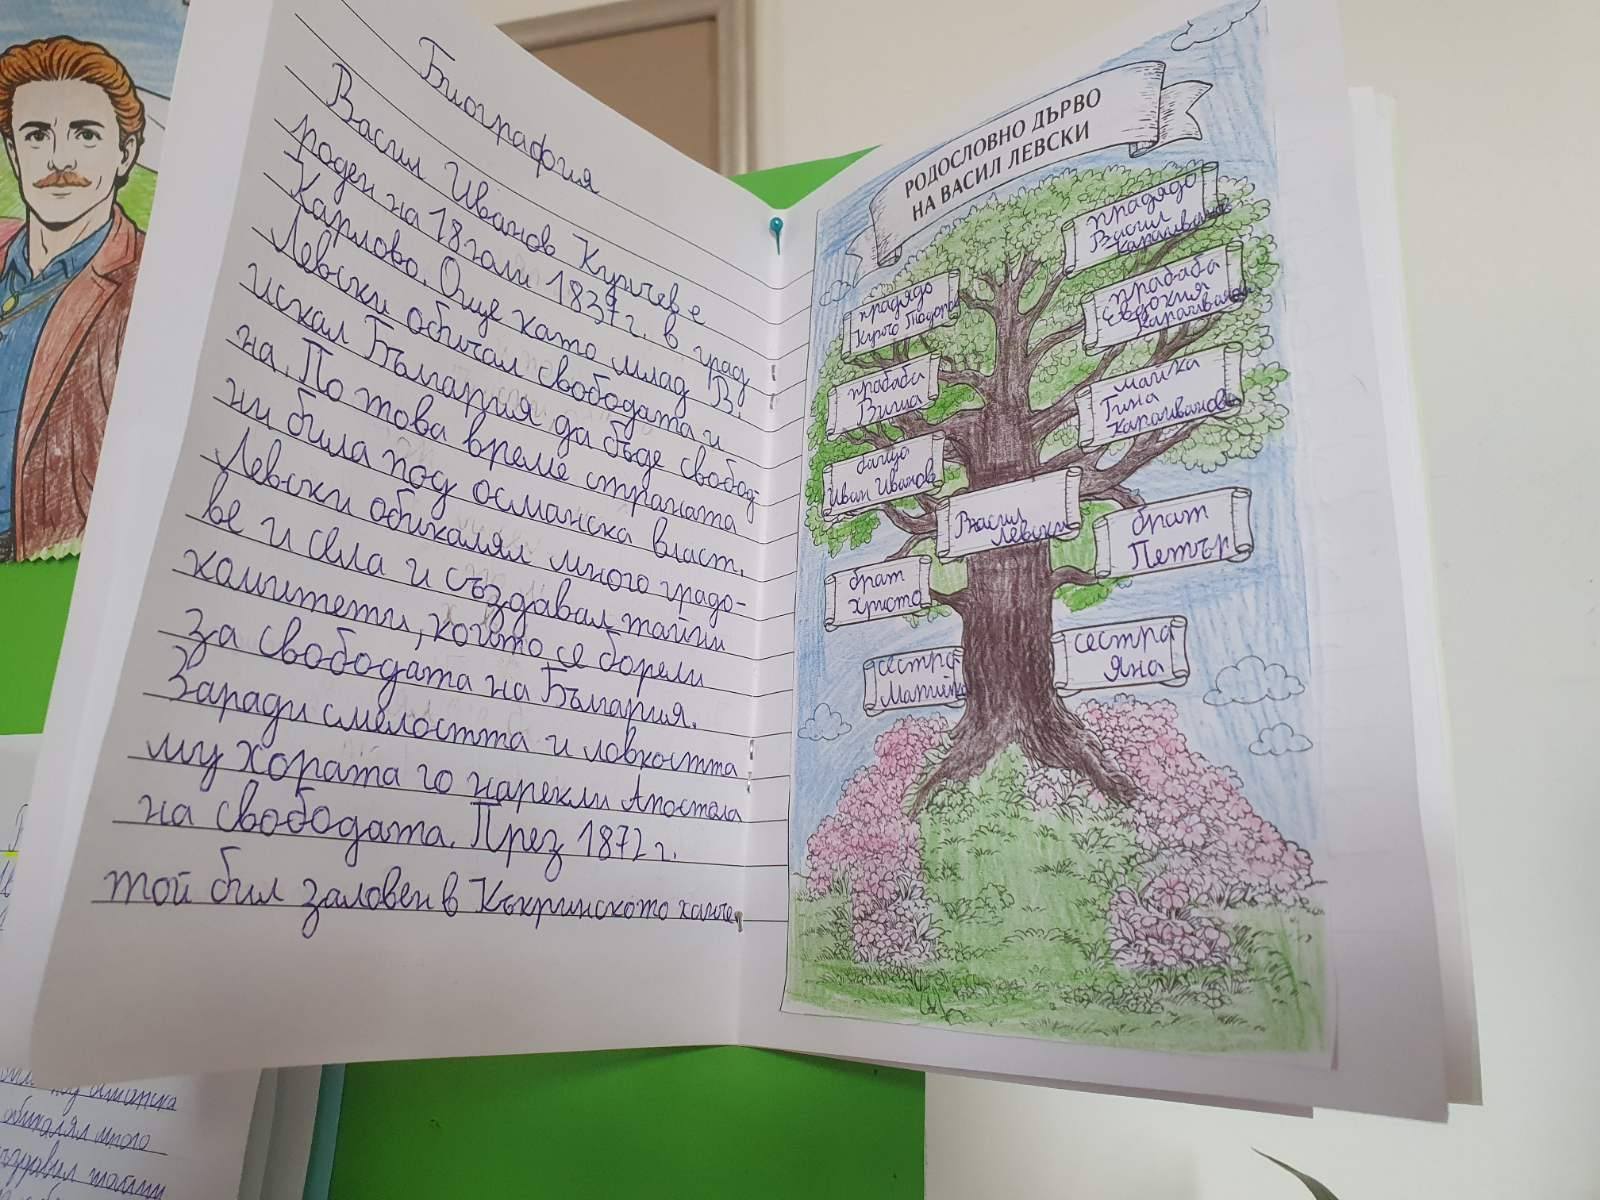 Биография
Васил Иванов Кунчев е
роден на 18 юли 1837 г. в град
Карлово. Още като млад В.
Левски обичал свободата и
искал България да бъде свобод-
на. По това време страната
ни била под османска власт.
Левски обикалял много градо-
ве и села и създавал тайни
комитети, които се борели
за свободата на България.
Заради смелостта и ловкостта
му хората го нарекли Апостола
на свободата. През 1872 г.
той бил заловен в Къкринското ханче.
РОДОСЛОВНО ДЪРВО
НА ВАСИЛ ЛЕВСКИ
прадядо
Васил
Караиванов
прабаба
Евдокия
Караиванова
майка
Гина
Караиванова
прадядо
Кунчо
прабаба
баща
Иван Иванов
Васил
Левски
брат
Петър
брат
Христо
сестра
Яна
сестра
под османска
обикалял много